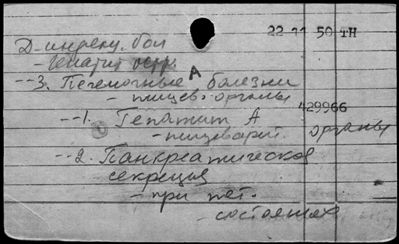 22 11 50 TH
Д-инфекц. бол
- гепатит остр.
A
--3. Печеночные болезни
- пищев. органы
429966
--1. Гепатит А
- пищеварит. органы
--2. Панкреатическая
секреция
- при пат.
- состояниях